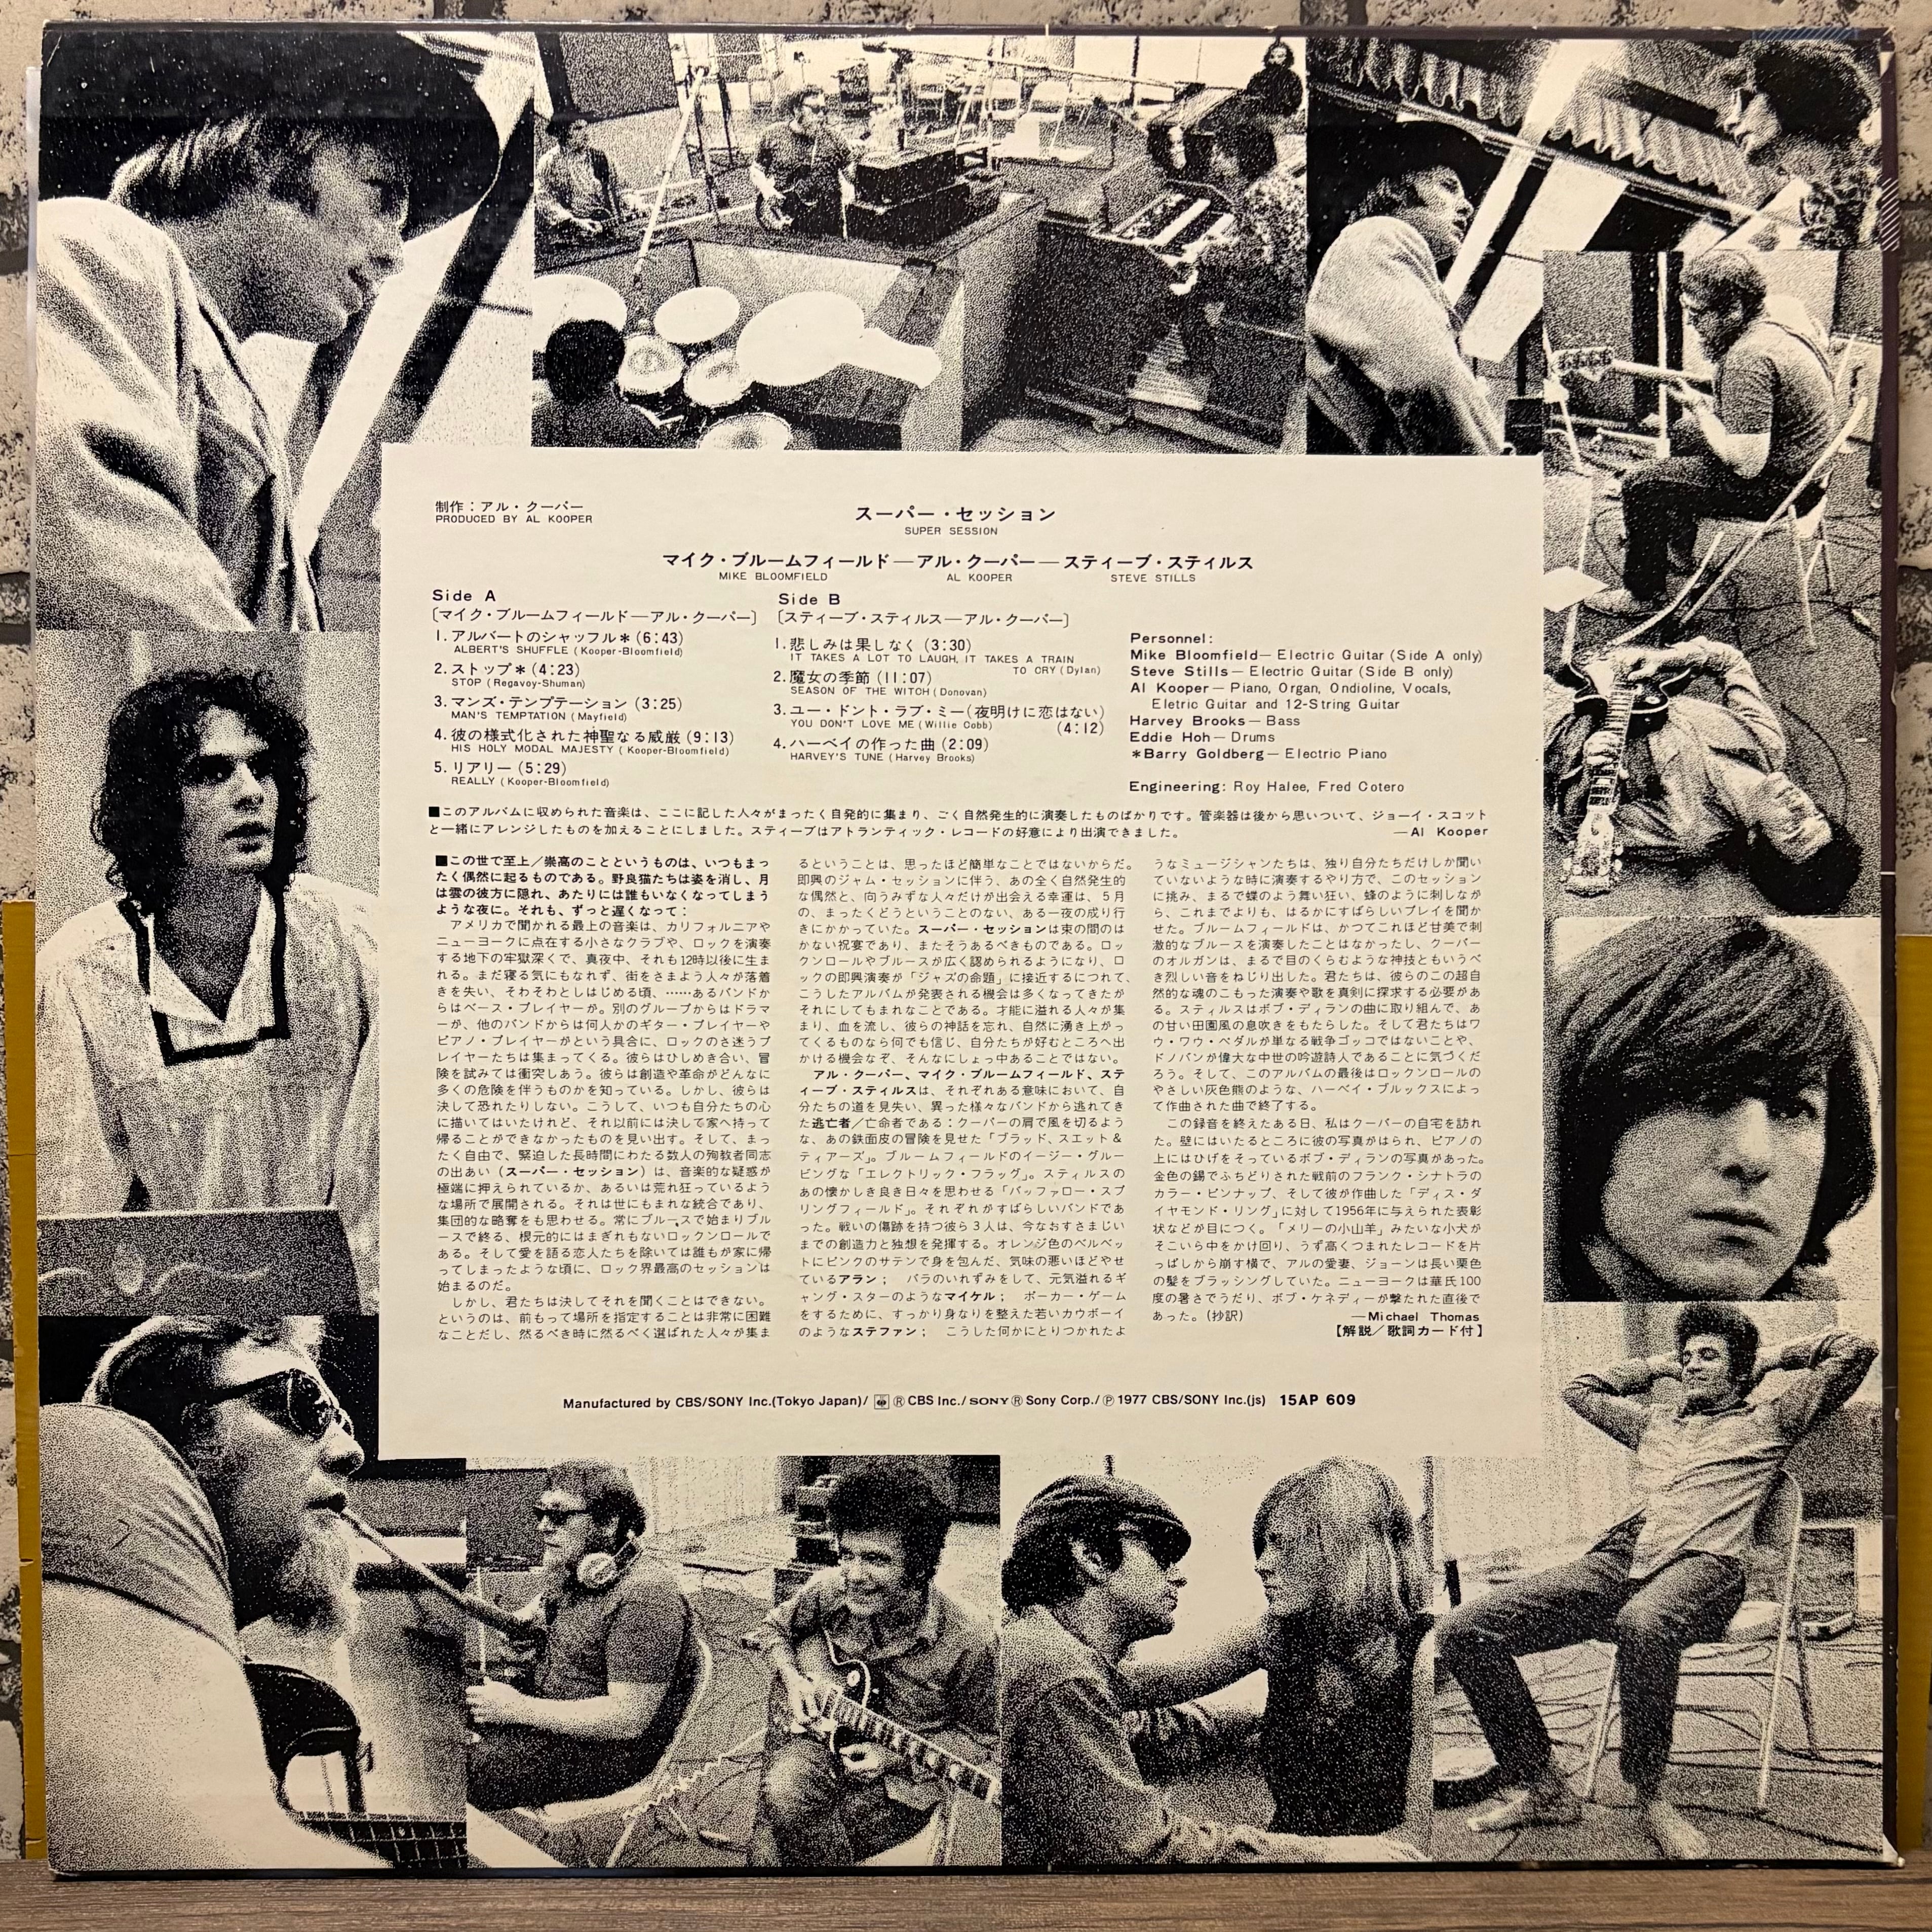 制作：アル・クーパー
PRODUCED BY AL KOOPER
スーパー・セッション
SUPER SESSION
マイク・ブルームフィールド—アル・クーパー—スティーブ・スティルス
MIKE BLOOMFIELD AL KOOPER STEVE STILLS
Side A
〔マイク・ブルームフィールド—アル・クーパー〕
1. アルバートのシャッフル＊(6:43)
ALBERT'S SHUFFLE (Kooper-Bloomfield)
2. ストップ＊(4:23)
STOP (Regavoy-Shuman)
3. マンズ・テンプテーション (3:25)
MAN'S TEMPTATION (Mayfield)
4. 彼の様式化された神聖なる威厳 (9:13)
HIS HOLY MODAL MAJESTY (Kooper-Bloomfield)
5. リアリー (5:29)
REALLY (Kooper-Bloomfield)
Side B
〔スティーブ・スティルス—アル・クーパー〕
1. 悲しみは果しなく (3:30)
IT TAKES A LOT TO LAUGH, IT TAKES A TRAIN
TO CRY (Dylan)
2. 魔女の季節 (11:07)
SEASON OF THE WITCH (Donovan)
3. ユー・ドント・ラブ・ミー(夜明けに恋はない)
YOU DON'T LOVE ME (Willie Cobb) (4:12)
4. ハーベイの作った曲 (2:09)
HARVEY'S TUNE (Harvey Brooks)
Personnel:
Mike Bloomfield— Electric Guitar (Side A only)
Steve Stills— Electric Guitar (Side B only)
Al Kooper— Piano, Organ, Ondioline, Vocals,
Eletric Guitar and 12-String Guitar
Harvey Brooks— Bass
Eddie Hoh— Drums
＊Barry Goldberg— Electric Piano
Engineering: Roy Halee, Fred Cotero
■このアルバムに収められた音楽は、ここに記した人々がまったく自発的に集まり、ごく自然発生的に演奏したものばかりです。管楽器は後から思いついて、ジョーイ・スコット
と一緒にアレンジしたものを加えることにしました。スティーブはアトランティック・レコードの好意により出演できました。 —Al Kooper
■この世で至上／崇高のことというものは、いつもまっ
たく偶然に起るものである。野良猫たちは姿を消し、月
は雲の彼方に隠れ、あたりには誰もいなくなってしまう
ような夜に。それも、ずっと遅くなって：
アメリカで聞かれる最上の音楽は、カリフォルニアや
ニューヨークに点在する小さなクラブや、ロックを演奏
する地下の牢獄深くで、真夜中、それも12時以後に生ま
れる。まだ寝る気にもなれず、街をさまよう人々が落着
きを失い、そわそわとしはじめる頃、……あるバンドか
らはベース・プレイヤーが。別のグループからはドラマ
ーが、他のバンドからは何人かのギター・プレイヤーや
ピアノ・プレイヤーがという具合に、ロックのさ迷うプ
レイヤーたちは集まってくる。彼らはひしめき合い、冒
険を試みては衝突しあう。彼らは創造や革命がどんなに
多くの危険を伴うものかを知っている。しかし、彼らは
決して恐れたりしない。こうして、いつも自分たちの心
に描いてはいたけれど、それ以前には決して家へ持って
帰ることができなかったものを見い出す。そして、まっ
たく自由で、緊迫した長時間にわたる数人の殉教者同志
の出あい（スーパー・セッション）は、音楽的な疑惑が
極端に押えられているか、あるいは荒れ狂っているよう
な場所で展開される。それは世にもまれな統合であり、
集団的な略奪をも思わせる。常にブルースで始まりブル
ースで終る、根元的にはまぎれもないロックンロールで
ある。そして愛を語る恋人たちを除いては誰もが家に帰
ってしまったような頃に、ロック界最高のセッションは
始まるのだ。
しかし、君たちは決してそれを聞くことはできない。
というのは、前もって場所を指定することは非常に困難
なことだし、然るべき時に然るべく選ばれた人々が集ま
るということは、思ったほど簡単なことではないからだ。
即興のジャム・セッションに伴う、あの全く自然発生的
な偶然と、向うみずな人々だけが出会える幸運は、5月
の、まったくどうということのない、ある一夜の成り行
きにかかっていた。スーパー・セッションは束の間のは
かない祝宴であり、またそうあるべきものである。ロッ
クンロールやブルースが広く認められるようになり、ロ
ックの即興演奏が「ジャズの命題」に接近するにつれて、
こうしたアルバムが発表される機会は多くなってきたが
それにしてもまれなことである。才能に溢れる人々が集
まり、血を流し、彼らの神話を忘れ、自然に湧き上がっ
てくるものなら何でも信じ、自分たちが好むところへ出
かける機会なぞ、そんなにしょっ中あることではない。
アル・クーパー、マイク・ブルームフィールド、ステ
ィーブ・スティルスは、それぞれある意味において、自
分たちの道を見失い、異った様々なバンドから逃れてき
た逃亡者／亡命者である：クーパーの肩で風を切るよう
な、あの鉄面皮の冒険を見せた「ブラッド、スエット＆
ティアーズ」。ブルームフィールドのイージー・グルー
ビングな「エレクトリック・フラッグ」。スティルスの
あの懐かしき良き日々を思わせる「バッファロー・スプ
リングフィールド」。それぞれがすばらしいバンドであ
った。戦いの傷跡を持つ彼ら3人は、今なおすさまじい
までの創造力と独想を発揮する。オレンジ色のベルベッ
トにピンクのサテンで身を包んだ、気味の悪いほどやせ
ているアラン； バラのいれずみをして、元気溢れるギ
ャング・スターのようなマイケル； ポーカー・ゲーム
をするために、すっかり身なりを整えた若いカウボーイ
のようなステファン； こうした何かにとりつかれたよ
うなミュージシャンたちは、独り自分たちだけしか聞い
ていないような時に演奏するやり方で、このセッション
に挑み、まるで蝶のよう舞い狂い、蜂のように刺しなが
ら、これまでよりも、はるかにすばらしいプレイを聞か
せた。ブルームフィールドは、かつてこれほど甘美で刺
激的なブルースを演奏したことはなかったし、クーパー
のオルガンは、まるで目のくらむような神技ともいうべ
き烈しい音をねじり出した。君たちは、彼らのこの超自
然的な魂のこもった演奏や歌を真剣に探求する必要があ
る。スティルスはボブ・ディランの曲に取り組んで、あ
の甘い田園風の息吹きをもたらした。そして君たちはワ
ウ・ワウ・ペダルが単なる戦争ゴッコではないことや、
ドノバンが偉大な中世の吟遊詩人であることに気づくだ
ろう。そして、このアルバムの最後はロックンロールの
やさしい灰色熊のような、ハーベイ・ブルックスによっ
て作曲された曲で終了する。
この録音を終えたある日、私はクーパーの自宅を訪れ
た。壁にはいたるところに彼の写真がはられ、ピアノの
上にはひげをそっているボブ・ディランの写真があった。
金色の錫でふちどりされた戦前のフランク・シナトラの
カラー・ピンナップ、そして彼が作曲した「ディス・ダ
イヤモンド・リング」に対して1956年に与えられた表彰
状などが目につく。「メリーの小山羊」みたいな小犬が
そこいら中をかけ回り、うず高くつまれたレコードを片
っぱしから崩す横で、アルの愛妻、ジョーンは長い栗色
の髪をブラッシングしていた。ニューヨークは華氏100
度の暑さでうだり、ボブ・ケネディーが撃たれた直後で
あった。（抄訳） —Michael Thomas
【解説／歌詞カード付】
Manufactured by CBS/SONY Inc.(Tokyo Japan)/ Ⓡ CBS Inc./ SONY Ⓡ Sony Corp./ Ⓟ 1977 CBS/SONY Inc.(js) 15AP 609